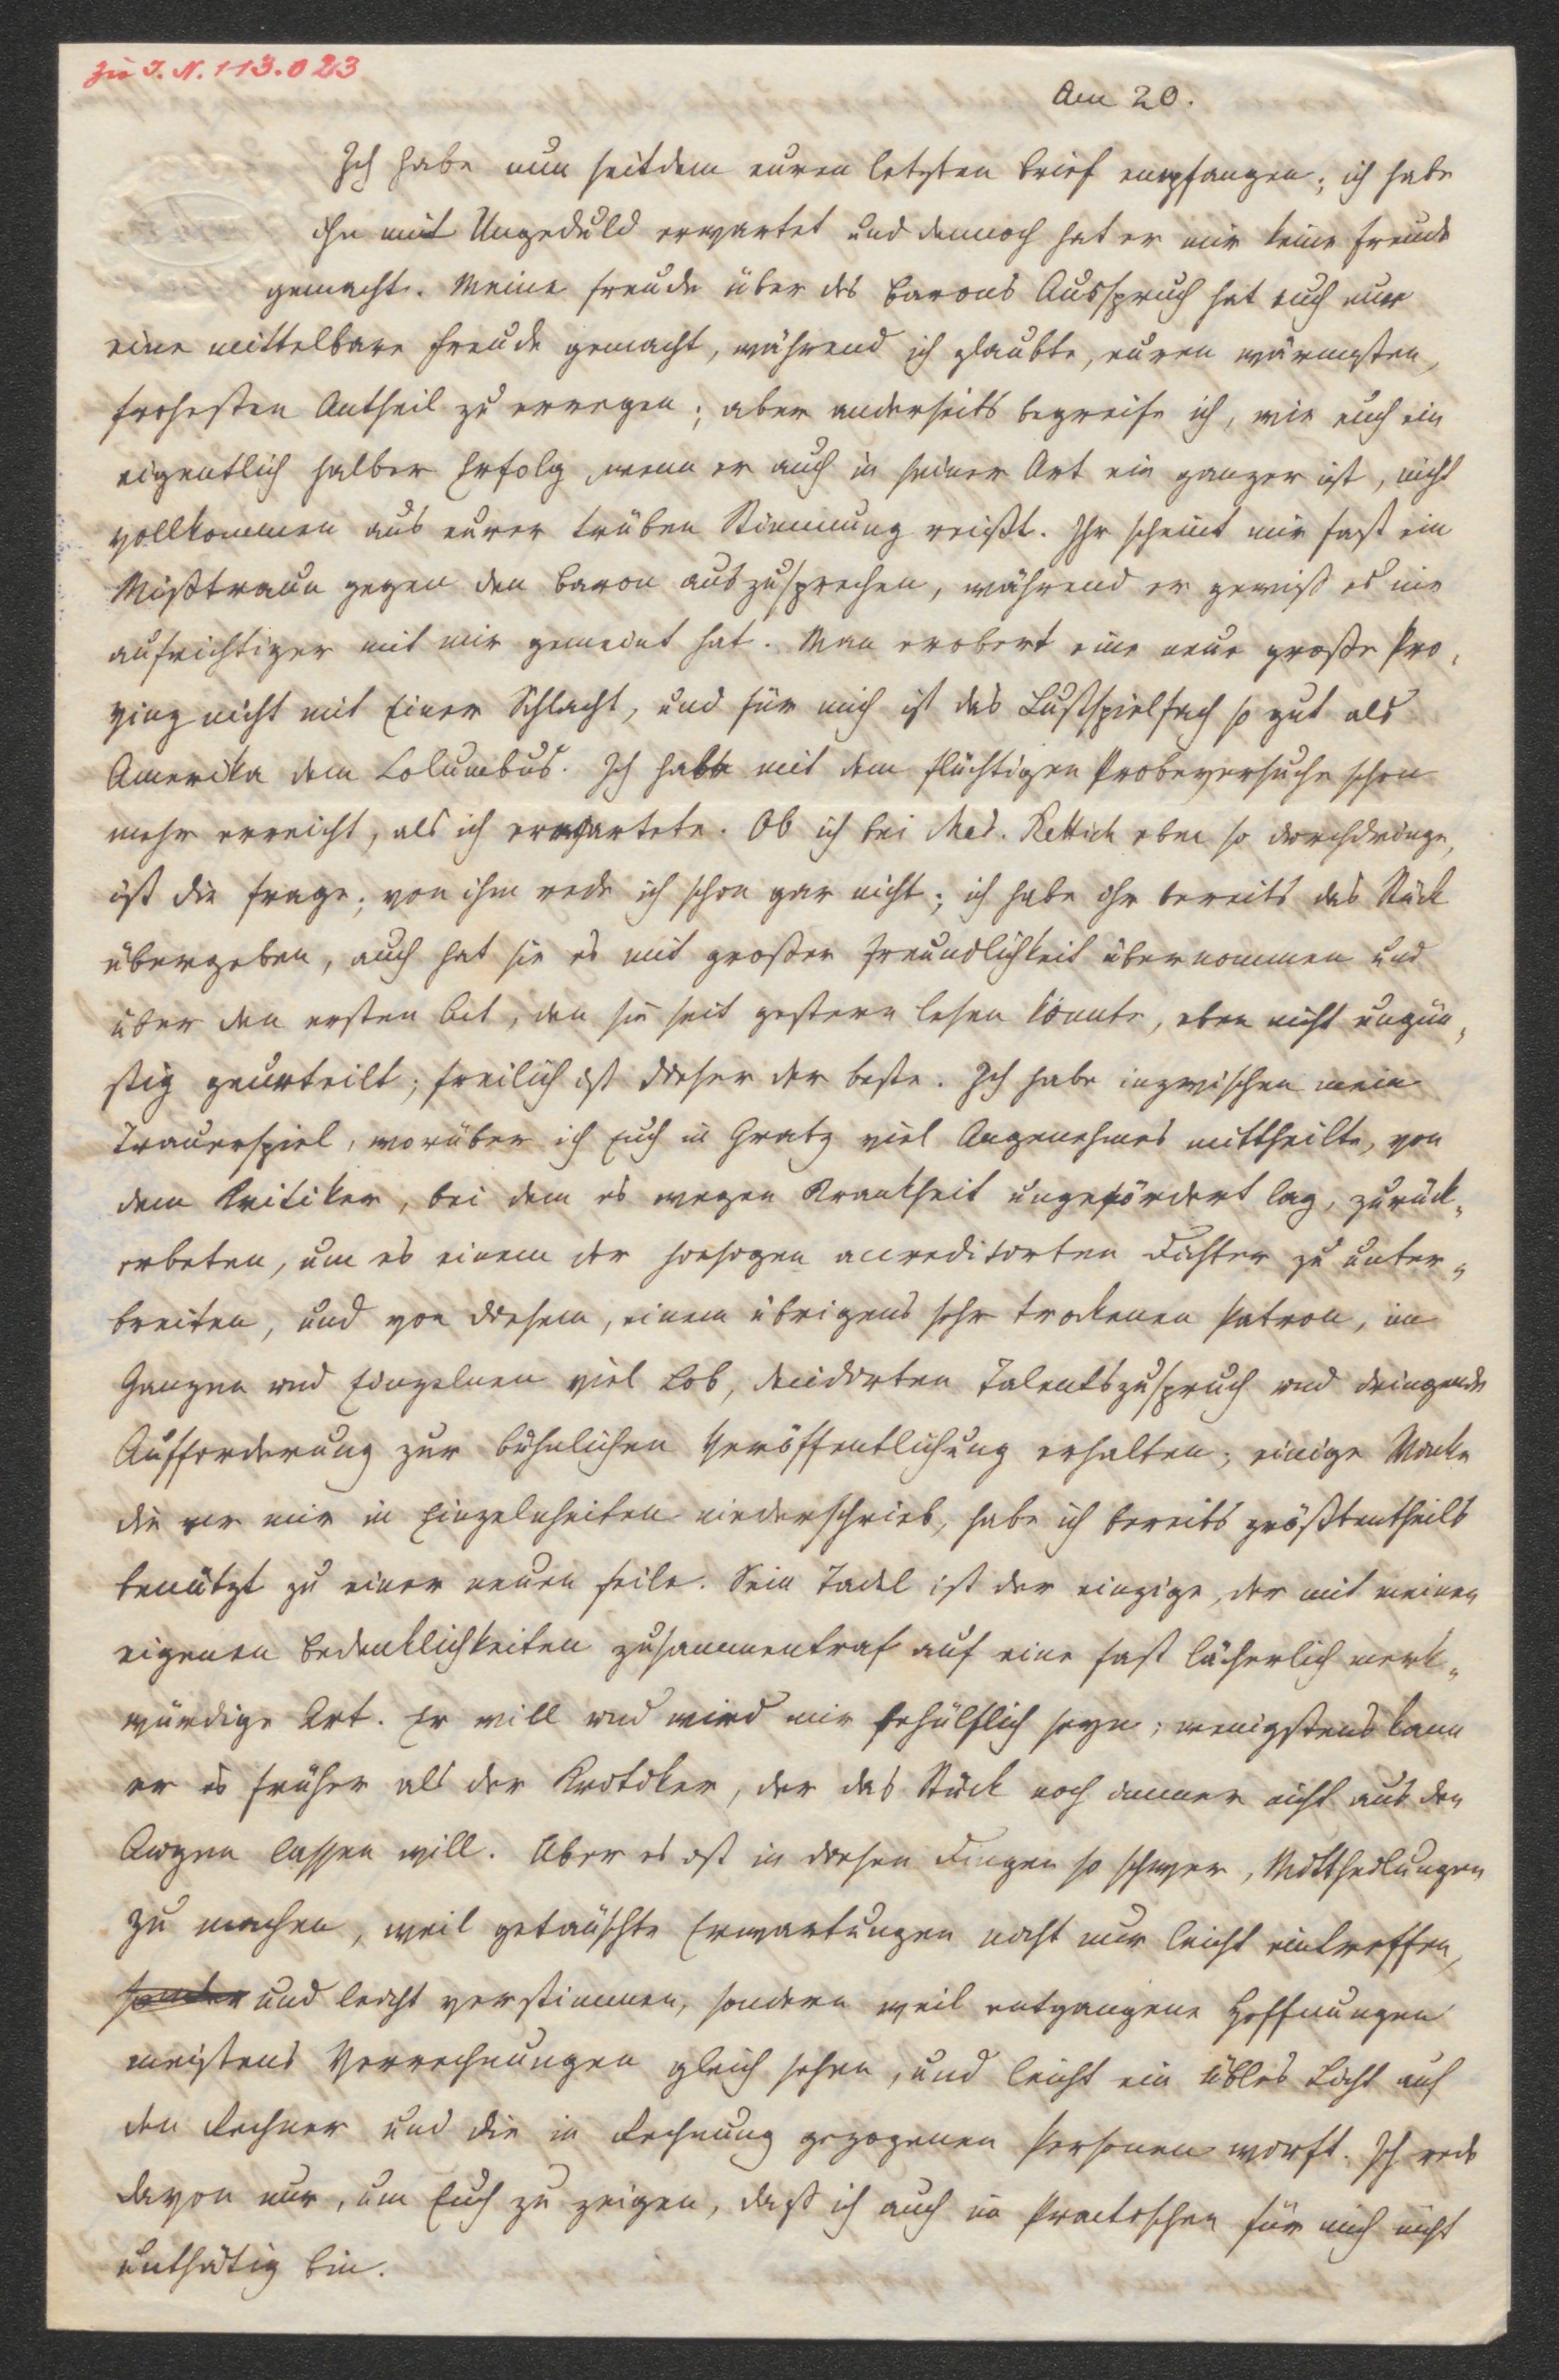 Zu I. N. 113.023
Am 20.
Ich habe nun seitdem euren letzten Brief empfangen; ich habe
ihn mit Ungeduld erwartet und dennoch hat er mir keine Freude
gemacht. Meine Freude über des Barons Ausspruch hat euch nur
eine mittelbare Freude gemacht, während ich glaubte, euren wärmsten,
frohesten Antheil zu erregen; aber anderseits begreife ich, wie euch ein
eigentlich halber Erfolg, wenn er auch in seiner Art ein ganzer ist, nicht
vollkommen aus eurer trüben Stimmung reißt. Ihr scheint mir fast ein
Mißtraun gegen den Baron auszusprechen, während er gewiß es nie
aufrichtiger mit mir gemeint hat. Man erobert eine neue große Pro-
vinz nicht mit Einer Schlacht, und für mich ist das Lustspielfach so gut als
Amerika dem Columbus. Ich habe mit dem flüchtigen Probeversuche schon
mehr erreicht, als ich erwartete. Ob ich bei Mad. Rettich eben so durchdringe,
ist die Frage; von ihm rede ich schon gar nicht; ich habe ihr bereits das Stück
übergeben, auch hat sie es mit großer Freundlichkeit übernommen und
über den ersten Act, den sie seit gestern lesen konnte, eben nicht ungün-
stig geurteilt; freilich ist dieser der beste. Ich habe inzwischen mein
Trauerspiel, worüber ich Euch in Gratz viel Angenehmes mittheilte, von
dem Kritiker, bei dem es wegen Krankheit ungefördert lag, zurück-
erbeten, um es einem der hiesigen accreditirten Dichter zu unter-
breiten, und von diesem, einem übrigens sehr trockenen Patron, im
Ganzen und Einzelnen viel Lob, decidirten Talentszuspruch und dringende
Aufforderung zur bühnlichen Veröffentlichung erhalten; einige Winke
die er mir in Einzelnheiten niederschrieb, habe ich bereits größtentheils
benützt zu einer neuen Feile. Sein Tadel ist der einzige, der mit meinen
eigenen Bedenklichkeiten zusammentraf auf eine fast lächerlich merk-
würdige Art. Er will und wird mir behülflich seyn; wenigstens kann
er es früher als der Kritiker, der das Stück noch immer nicht aus den
Augen lassen will. Aber es ist in diesen Dingen so schwer, Mittheilungen
zu machen, weil getäuschte Erwartungen nicht nur leicht eintreffen,
sonder und leicht verstimmen, sondern weil entgangene Hoffnungen
meistens Verrechnungen gleich sehen, und leicht ein übles Licht auf
den Rechner und die in Rechnung gezogenen Personen wirft. Ich rede
davon nur, um Euch zu zeigen, daß ich auch im Practischen für mich nicht
unthätig bin.